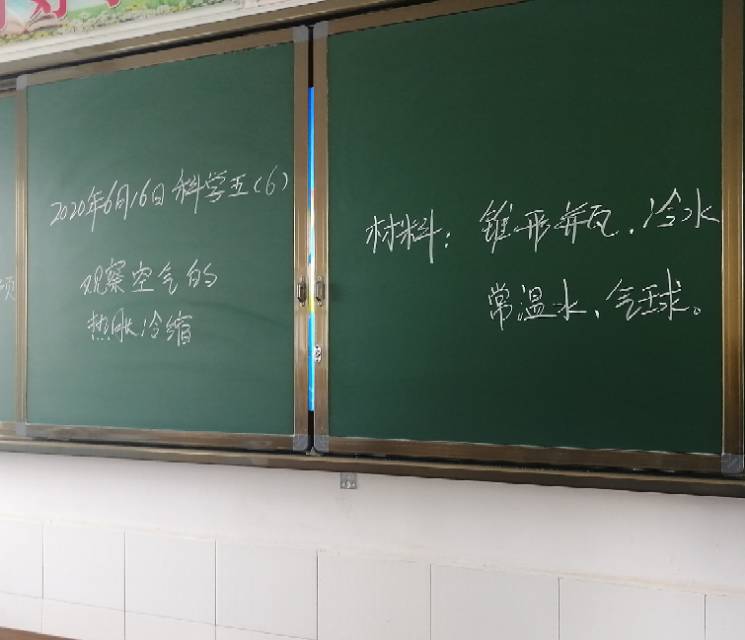 2020年6月16日 科学五(6)
观察空气的
热胀冷缩
材料：锥形瓶、冷水
常温水、气球。